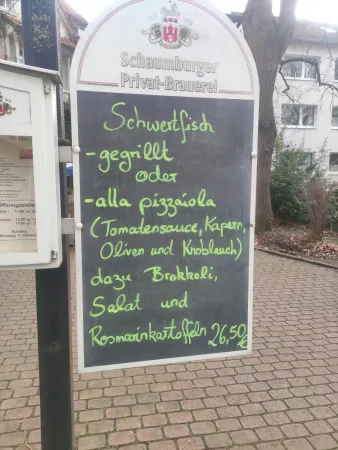 Schaumburger
Privat-Brauerei
Schwertfisch
-gegrillt
oder
-alla pizzaiola
(Tomatensauce, Kapern,
Oliven und Knoblauch)
dazu Brokkoli,
Salat und
Rosmarinkartoffeln 26,50€